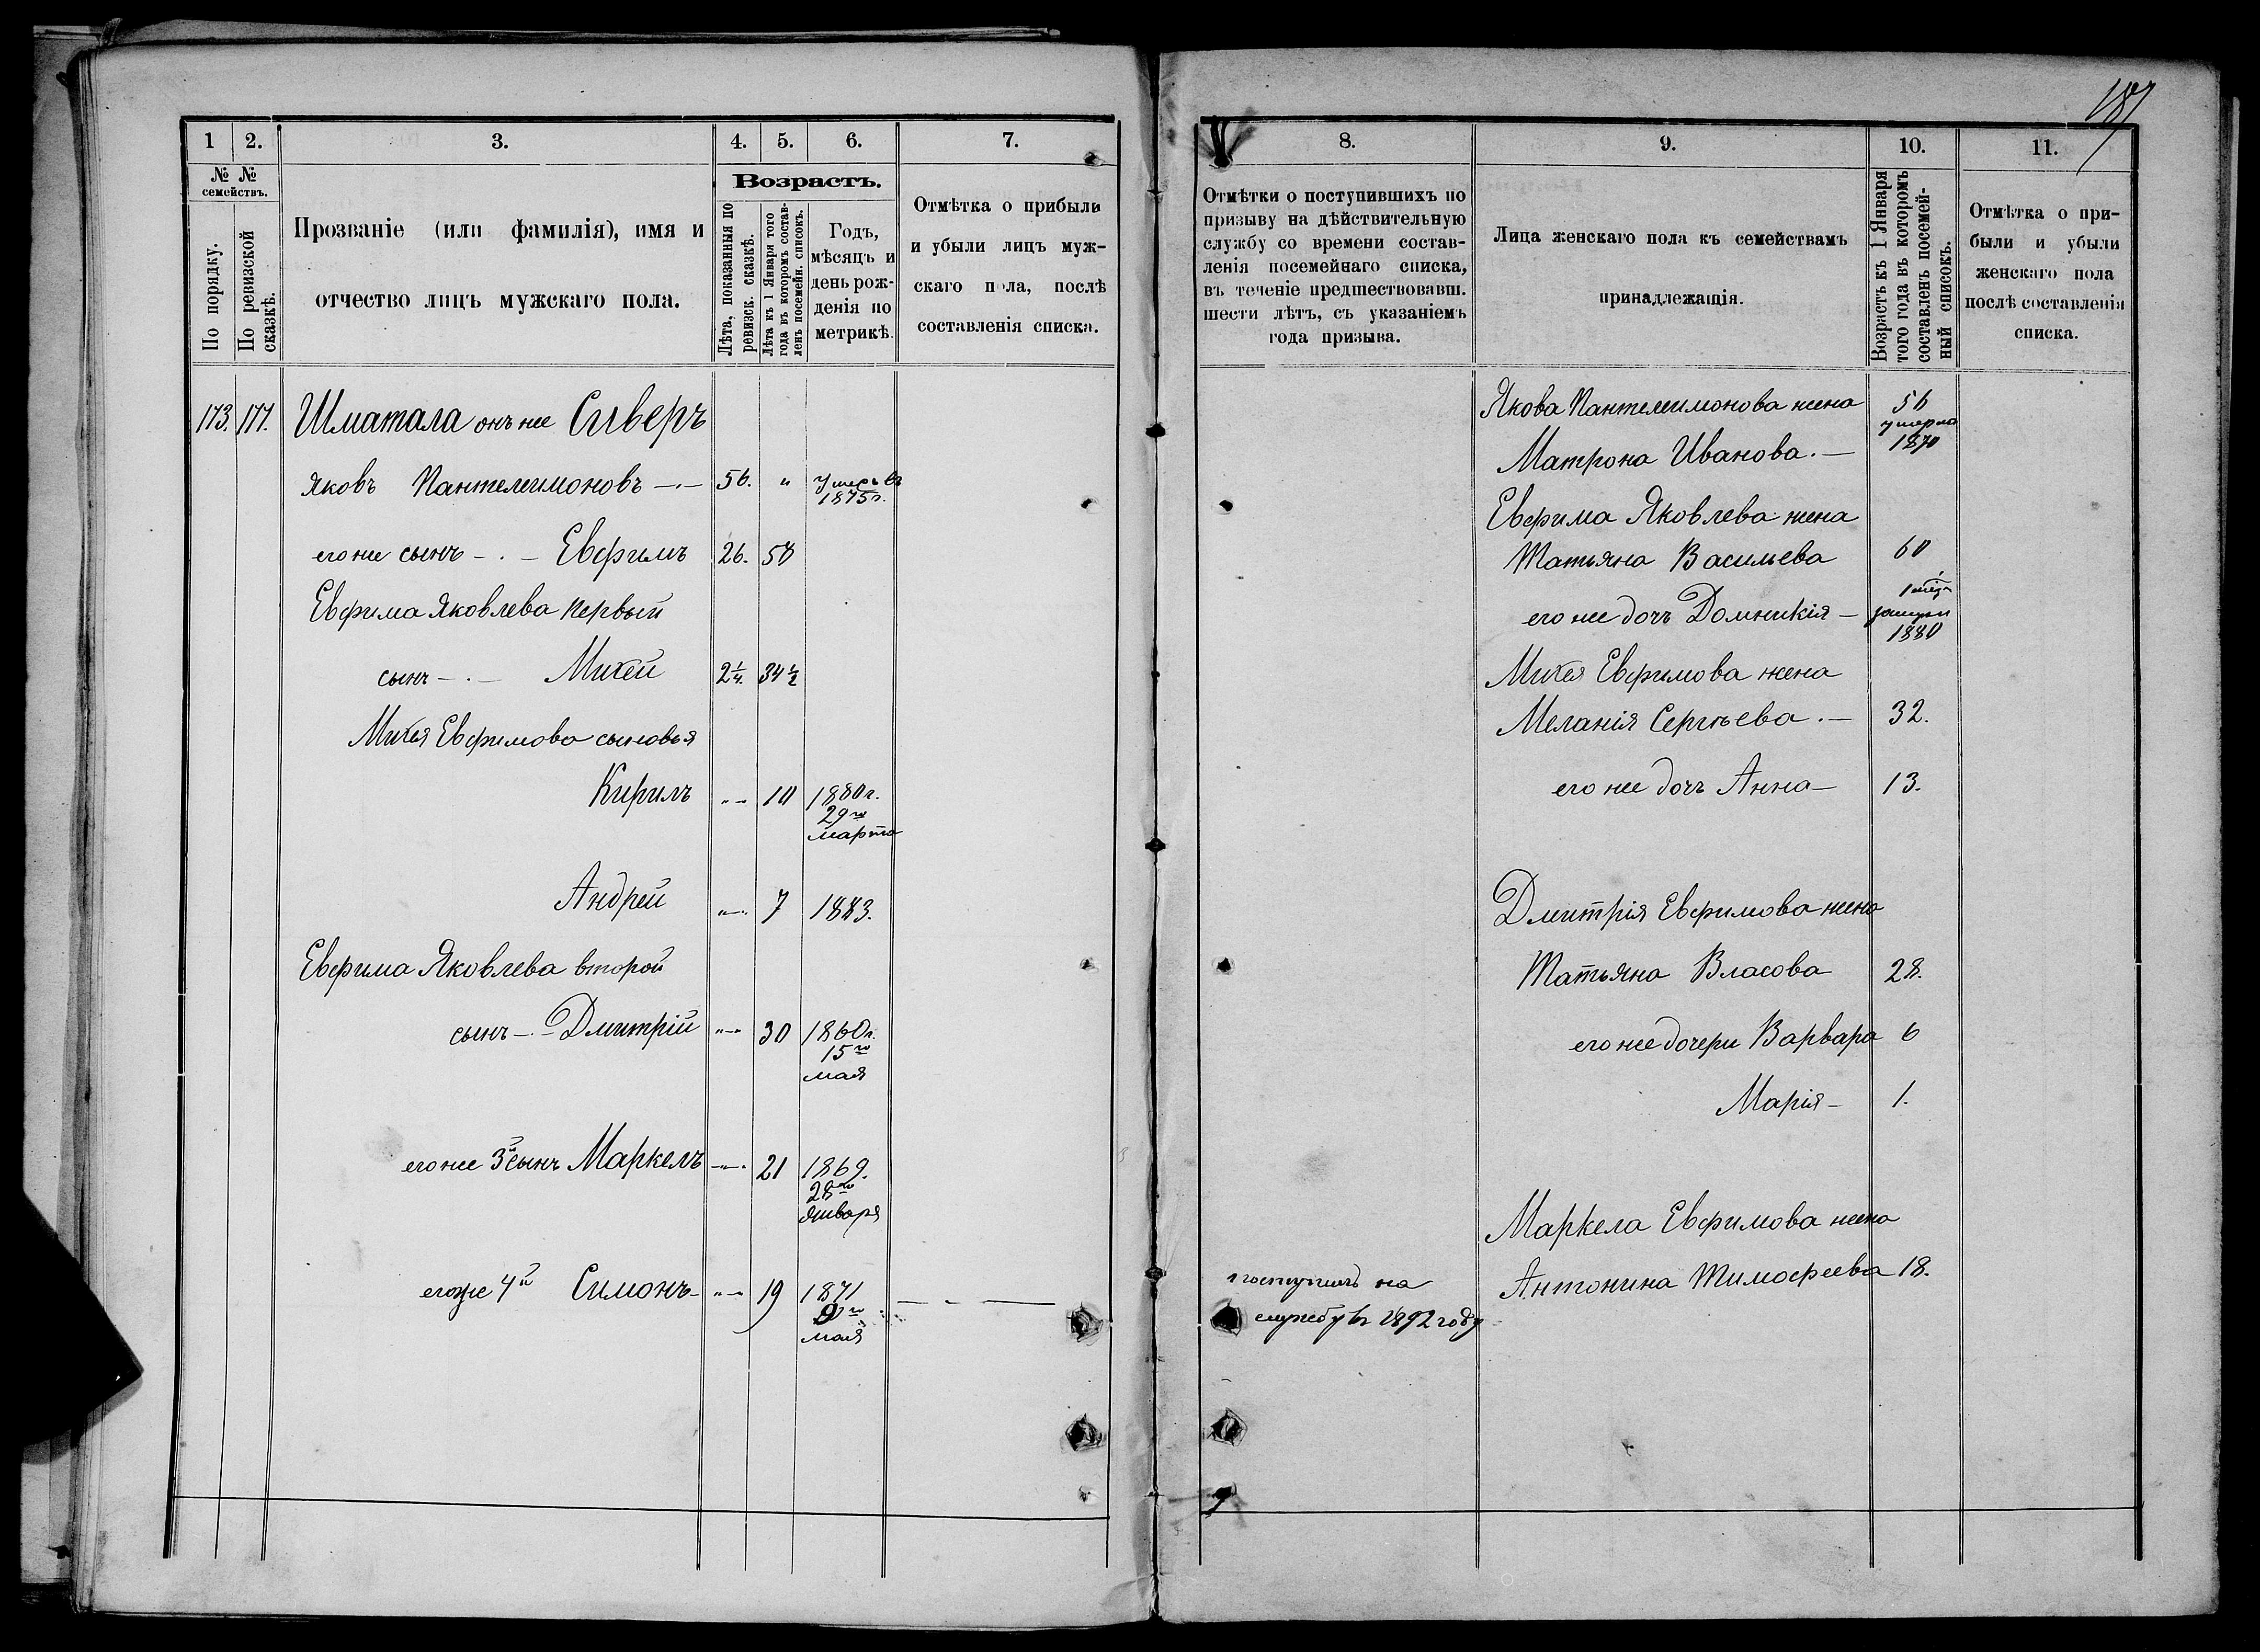 187
1
2.
3.
4.
5.
6.
7.
№ №
семействъ.
По порядку.
По ревизской
сказкѣ.
Прозваніе (или фамилія), имя и
отчество лицъ мужскаго пола.
Возрастъ.
Лѣта, показанныя по
ревизск. сказкѣ.
Лѣта къ 1 Января того
года въ которомъ состав-
ленъ посемейн. списокъ.
Годъ,
мѣсяцъ и
день рож-
денія по
метрикѣ.
Отмѣтка о прибыли
и убыли лицъ муж-
скаго пола, послѣ
составленія списка.
173. 177. Шматала онъ же Сиверъ
Яковъ Пантелеимоновъ —.— 56. " умеръ въ
1875 г.
его же сынъ — . — Евфимъ 26. 58
Евфима Яковлева первый
сынъ — . — Михей 2 1/4. 34 1/2
Михея Евфимова сыновья
Кирилъ „— 10 1880 г.
29го
марта
Андрей „—„ 7 1883.
Евфима Яковлева второй
сынъ — . — Дмитрій „—„ 30 1860 г.
15го
мая
его же 3й сынъ Маркелъ —„—. 21 1869.
28го
января
его же 4й Симонъ — „—„ 19 1871
9го
мая
8.
9.
10.
11.
Отмѣтки о поступившихъ по
призыву на дѣйствительную
службу со времени состав-
ленія посемейнаго списка,
въ теченіе предшествовавш.
шести лѣтъ, съ указаніемъ
года призыва.
Лица женскаго пола къ семействамъ
принадлежащія.
Возрастъ къ 1 Января
того года въ которомъ
составленъ посемей-
ный списокъ.
Отмѣтка о при-
были и убыли
женскаго пола
послѣ составленія
списка.
Якова Пантелеимонова жена 56
умерла
Матрона Иванова. — 1870
Евфима Яковлева жена
Татьяна Васильева 60
его же дочь Домникія —
1880
Михея Евфимова жена
Меланія Сергѣева . — 32.
его же дочь Анна — 13.
Дмитрія Евфимова жена
Татьяна Власова 28.
его же дочери Варвара 6
Марія — 1.
Маркела Евфимова жена
Антонина Тимофеева 18.
поступилъ на
службу въ 1892 году